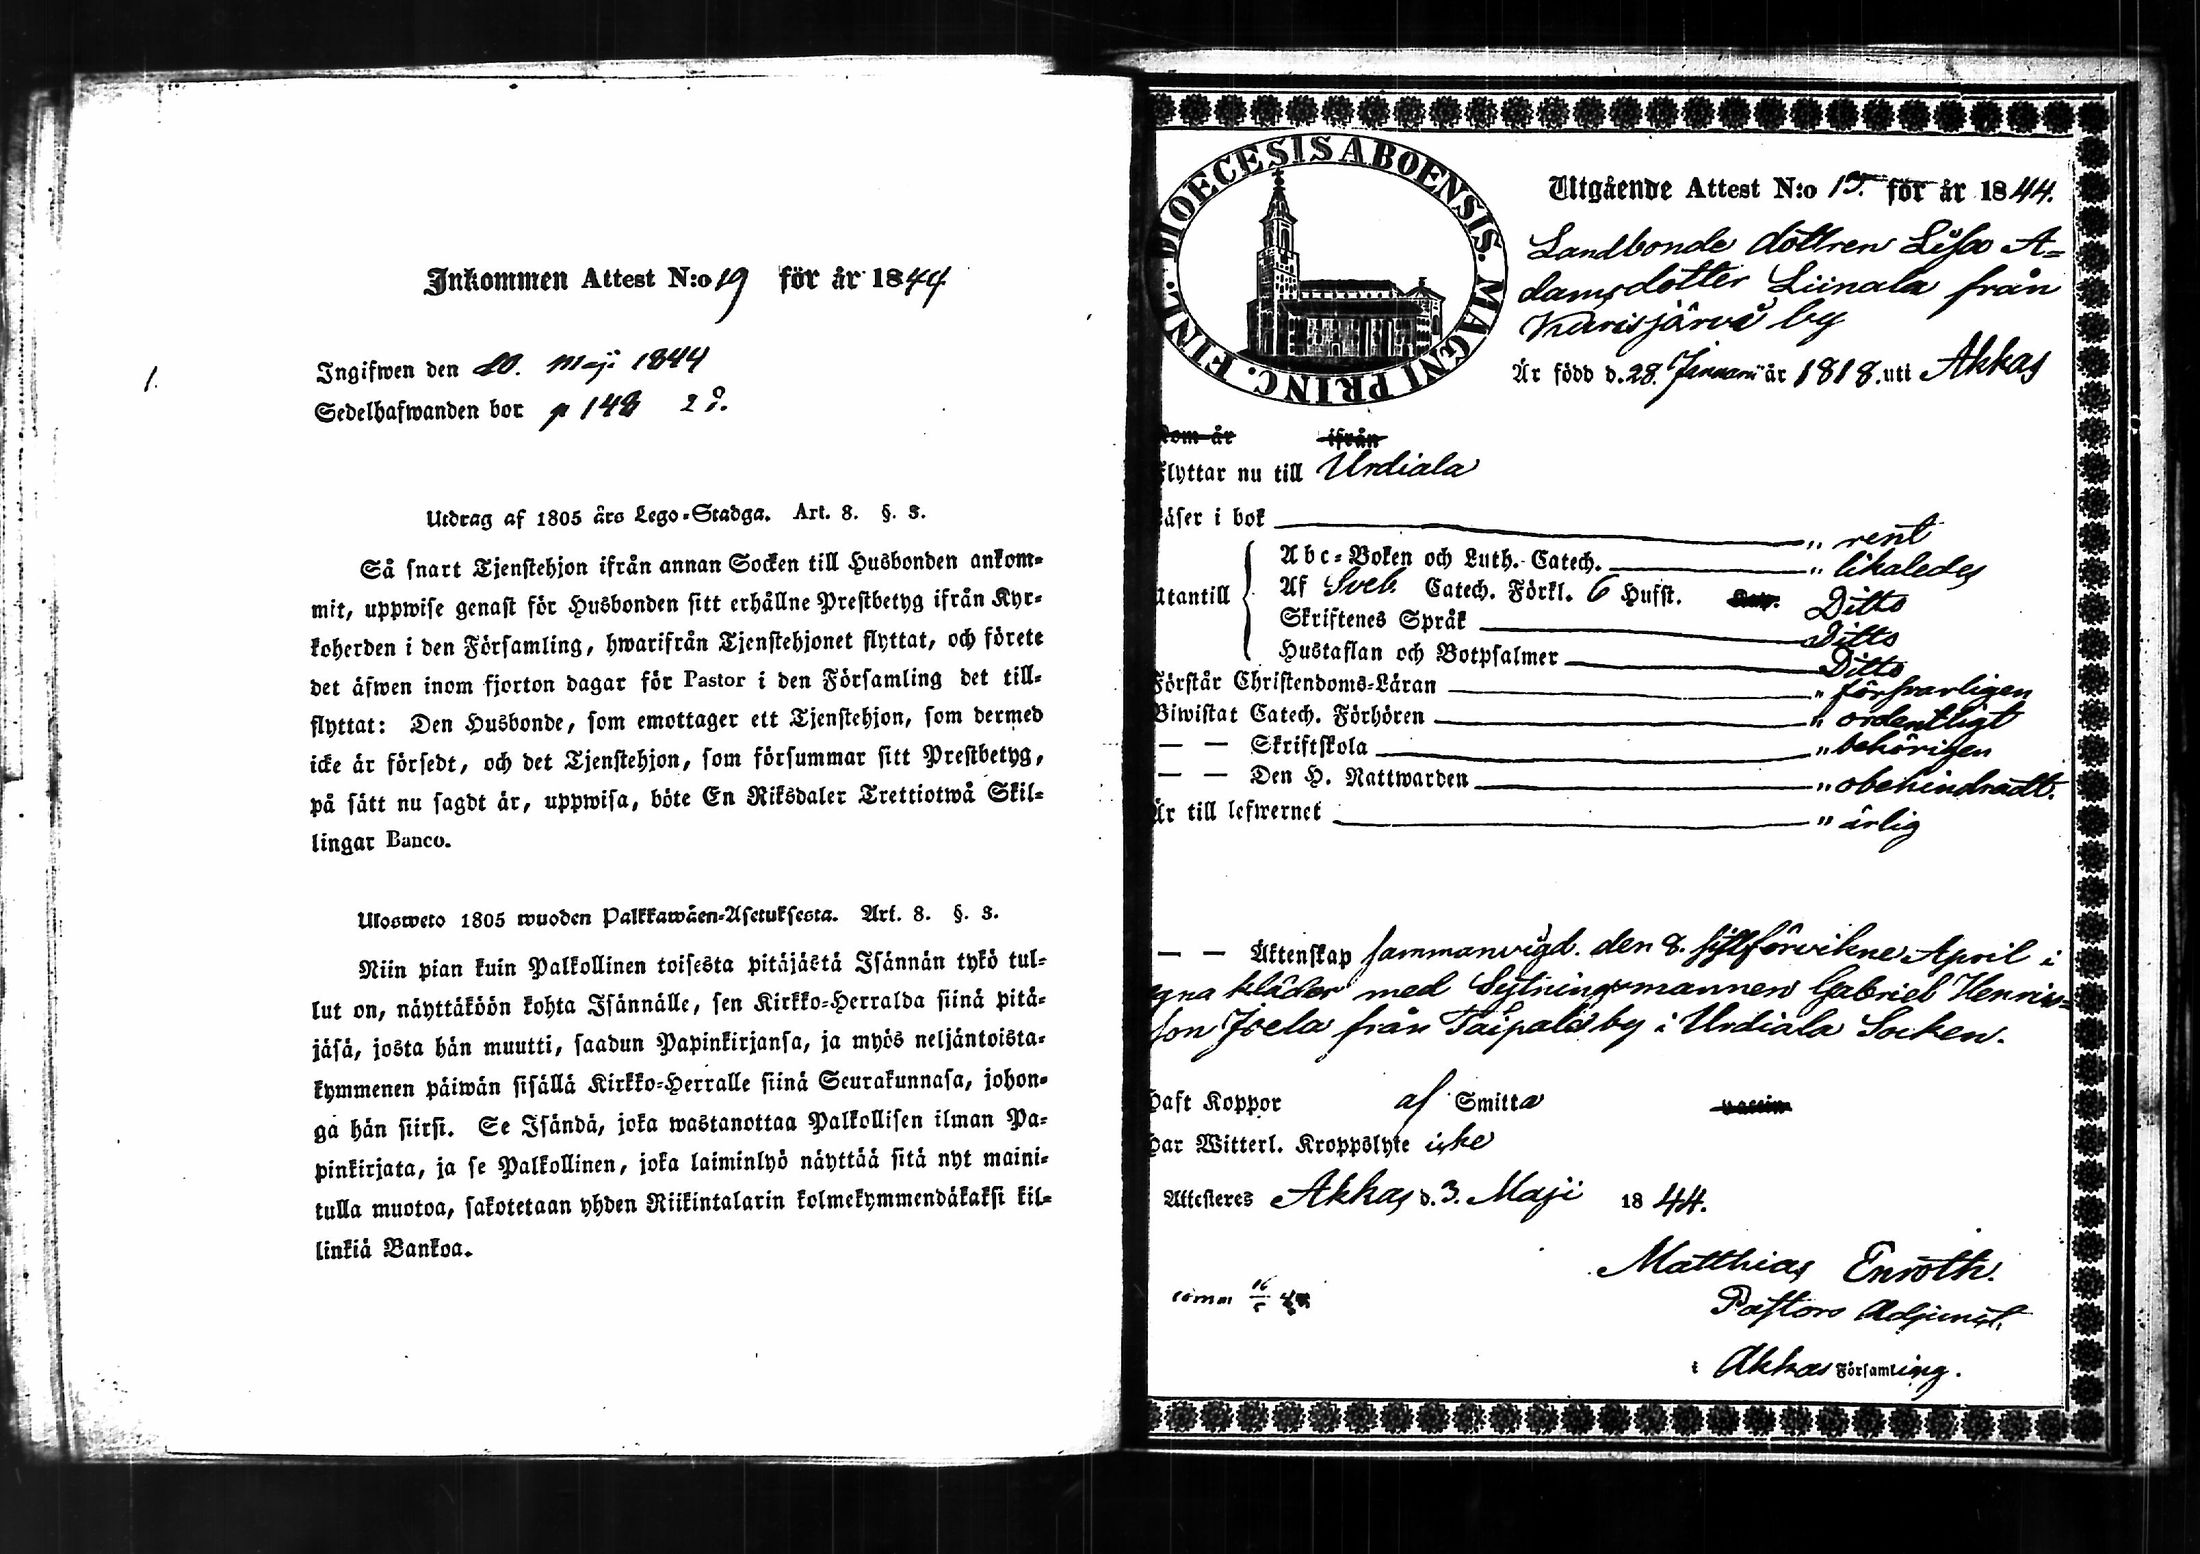 Inkommen Attest N:o 19 för år 1844
1.
Ingifwen den 20. Maji 1844
Sedelhafwanden bor p 148
Utdrag af 1805 års Lego-Stadga. Art. 8. §. 3.
Så snart Tjenstehjon ifrån annan Socken till Husbonden ankom-
mit, uppwise genast för Husbonden sitt erhållne Prestbetyg ifrån Kyr-
koherden i den Församling, hwarifrån Tjenstehjonet flyttat, och förete
det äfwen inom fjorton dagar för Pastor i den Församling det till-
flyttat: Den Husbonde, som emottager ett Tjenstehjon, som dermed
icke är försedt, och det Tjenstehjon, som försummar sitt Prestbetyg,
på sätt nu sagdt är, uppwisa, böte En Riksdaler Trettiotwå Skil-
lingar Banco.
Ulosweto 1805 wuoden Palkkawäen-Asetuksesta. Art. 8. §. 3.
Niin pian kuin Palkollinen toisesta pitäjästä Isännän tykö tul-
lut on, näyttäköön kohta Isännälle, sen Kirkko-Herralda siinä pitä-
jäsä, josta hän muutti, saadun Papinkirjansa, ja myös neljäntoista-
kymmenen päiwän sisällä Kirkko-Herralle siinä Seurakunnasa, johon-
ga hän siirsi. Se Isändä, joka wastanottaa Palkollisen ilman Pa-
pinkirjata, ja se Palkollinen, joka laiminlyö näyttää sitä nyt maini-
tulla muotoa, sakotetaan yhden Riikintalarin kolmekymmendäkaksi kil-
linkiä Bankoa.
DIOECESIS ABOENSIS. MAGNI PRINC. FINL.
Utgående Attest N:o 15. för år 1844.
Landbonde dottren Lisa A-
damsdotter Liinala från
Kurisjärvi by
Är född d. 28. Januari år 1818. uti Akkas
kom år ifrån
flyttar nu till Urdiala
läser i bok " rent
Utantill
Abc-Boken och Luth. Catech. " likaledes
Af Sveb. Catech. Förkl. 6 Hufst. Ditto
Skriftenes Språk Ditto
Hustaflan och Botpsalmer Ditto
Förstår Christendoms-Läran " försvarligen
Biwistat Catech. Förhören " ordentligt
— — Skriftskola " behörigen
— — Den H. Nattwarden " obehindradt.
Är till lefwernet " ärlig
— — Äktenskap sammanvigd. den 8. sistförvikne April i
egna kläder med Sytningsmannen Gabriel Henrics-
son Joela från Taipale by i Urdiala Socken.
haft Koppor af Smitta
har Witterl. Kroppslyte icke
Attesteres Akkas d. 3. Maji 1844.
Matthias Enroth.
Pastors Adjunct.
comm
i Akkas Församling.